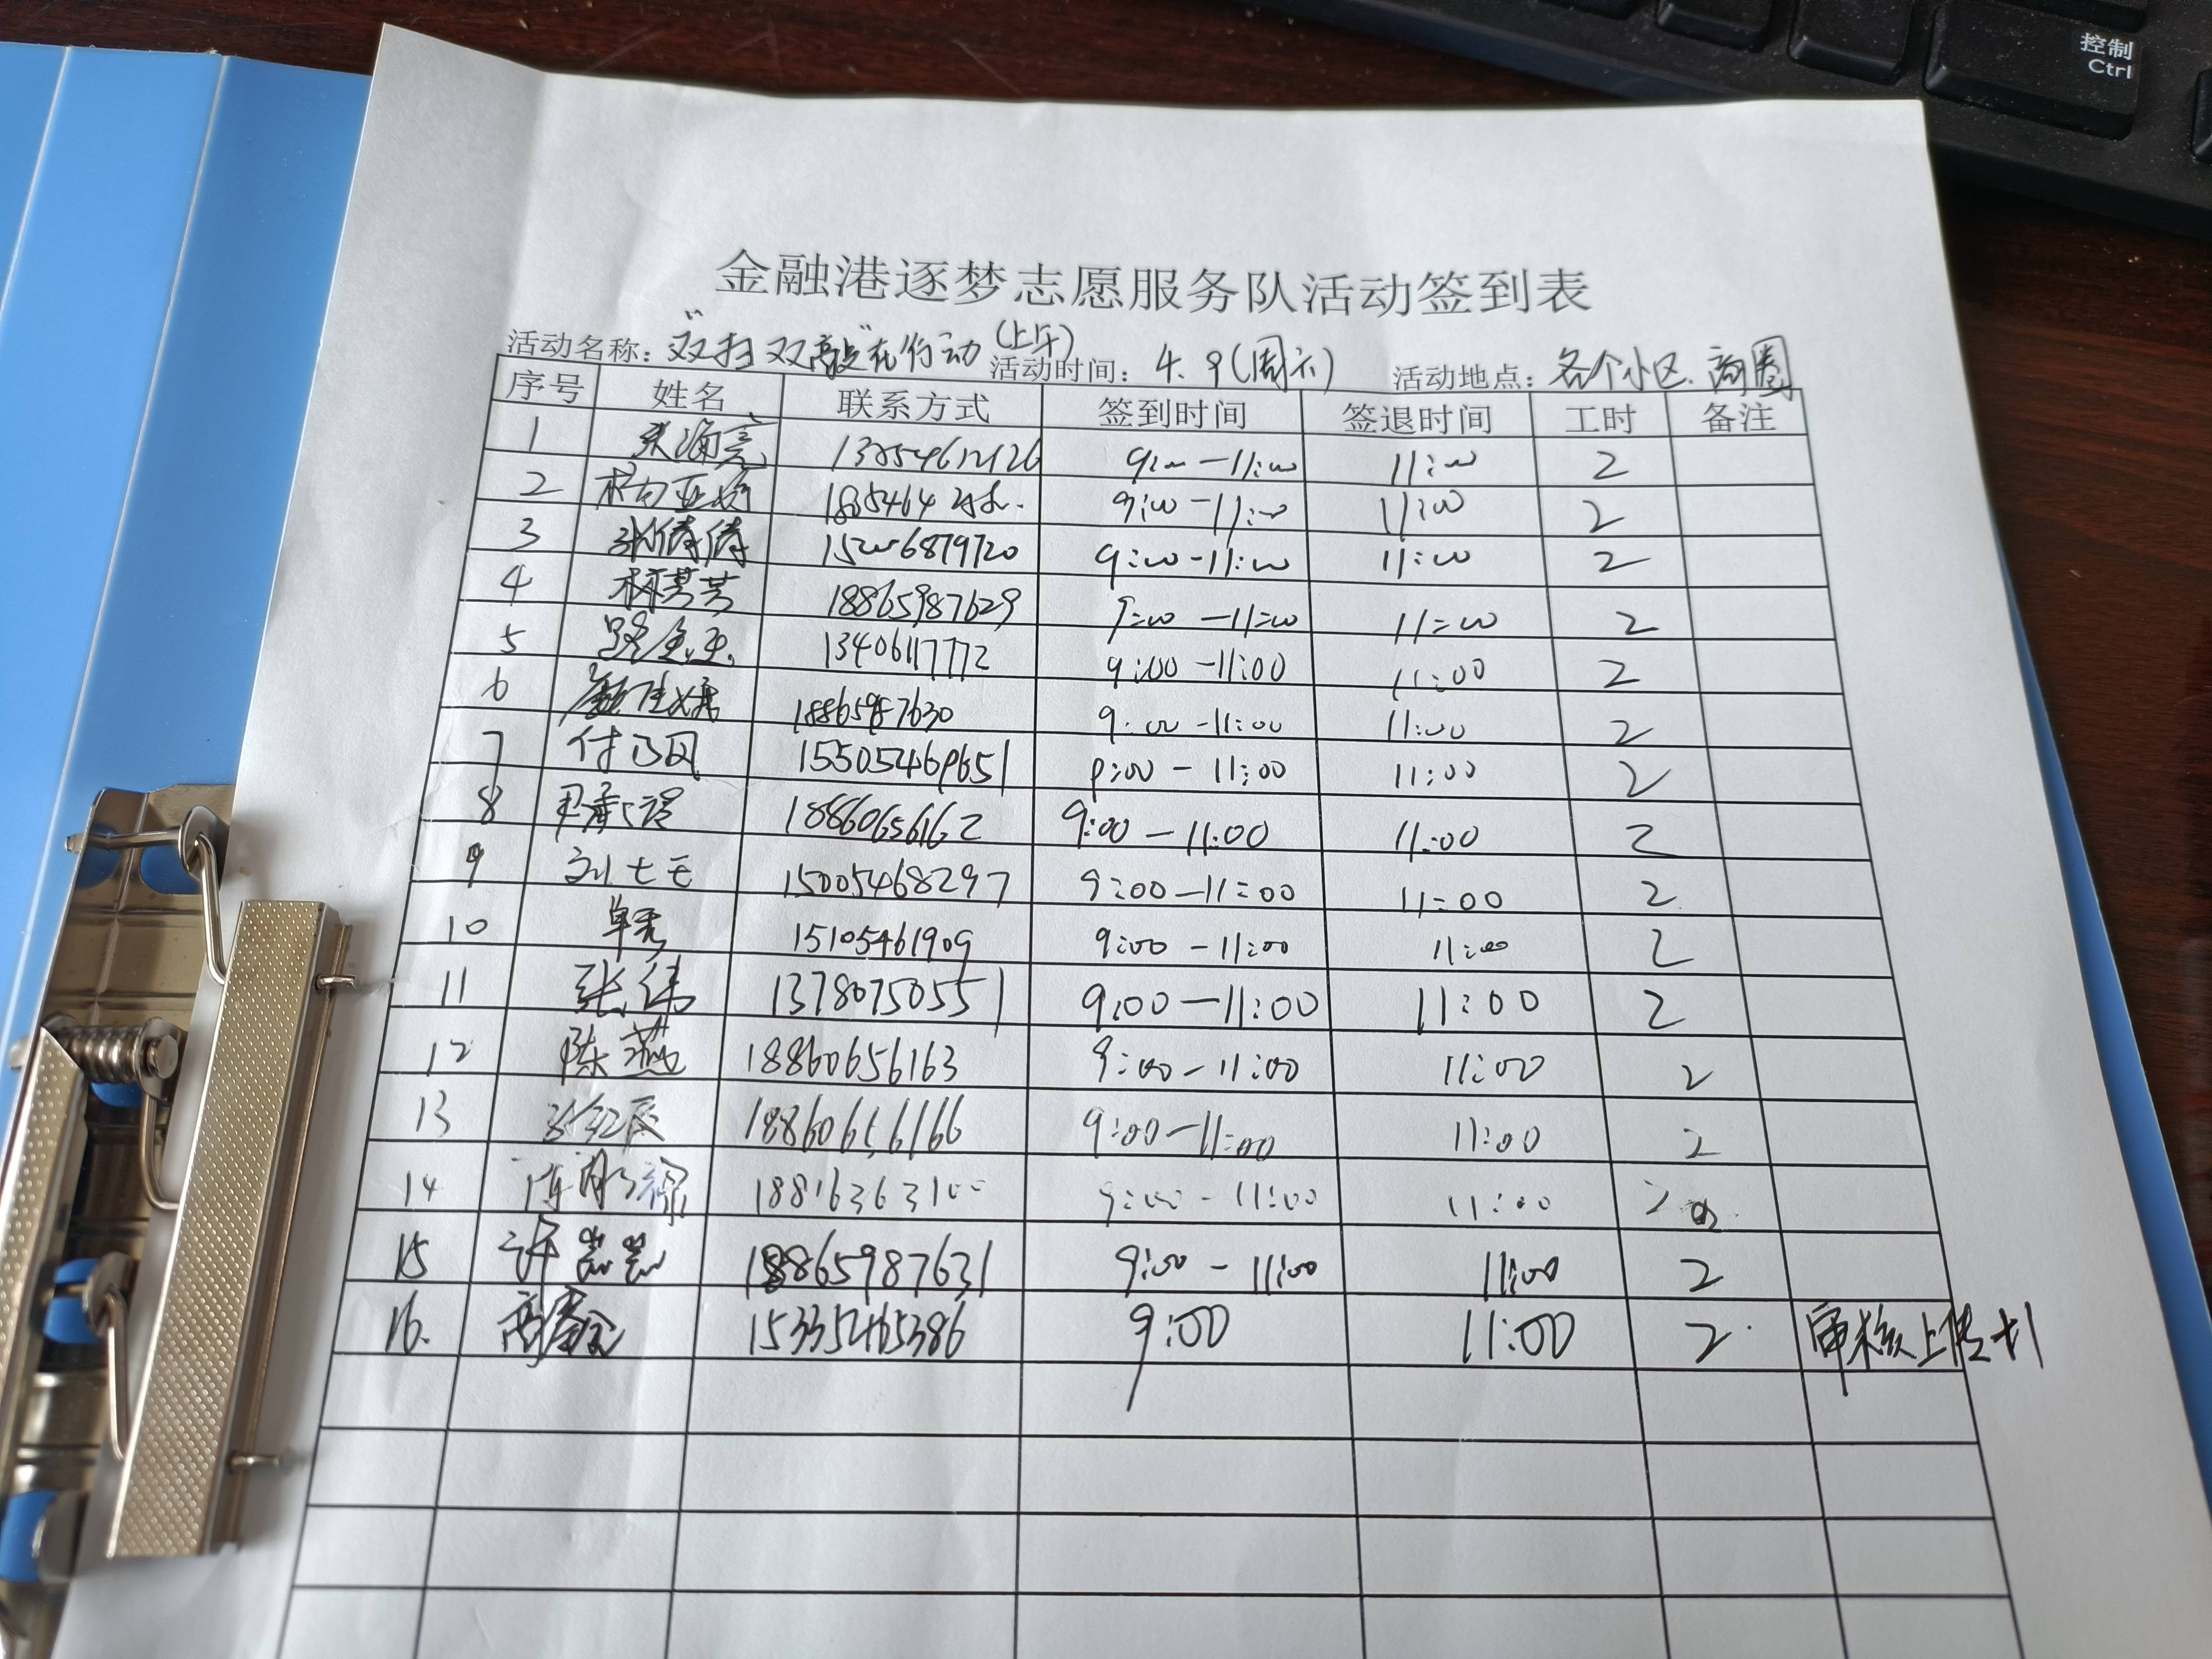 控制
Ctrl
金融港逐梦志愿服务队活动签到表
活动名称："双扫双敲"在行动(上午) 活动时间：4.9(周六) 活动地点：各个小区、商圈
序号 姓名 联系方式 签到时间 签退时间 工时 备注
1 张海亮 9:00-11:00 11:00 2
2 9:00-11:00 11:00 2
3 张倩倩 9:00-11:00 11:00 2
4 林芳芳 18865987629 9:00-11:00 11:00 2
5 13406117772 9:00-11:00 11:00 2
6 18865987630 9:00-11:00 11:00 2
7 付乃凤 15505469651 9:00-11:00 11:00 2
8 18860656162 9:00-11:00 11:00 2
9 15005468297 9:00-11:00 11:00 2
10 单秀 15105461909 9:00-11:00 11:00 2
11 张伟 13780750551 9:00-11:00 11:00 2
12 陈燕 18860656163 9:00-11:00 11:00 2
13 18860656166 9:00-11:00 11:00 2
14 18816363100 9:00-11:00 11:00 2
15 许芸芸 18865987631 9:00-11:00 11:00 2
16. 15335465386 9:00 11:00 2 审核上传